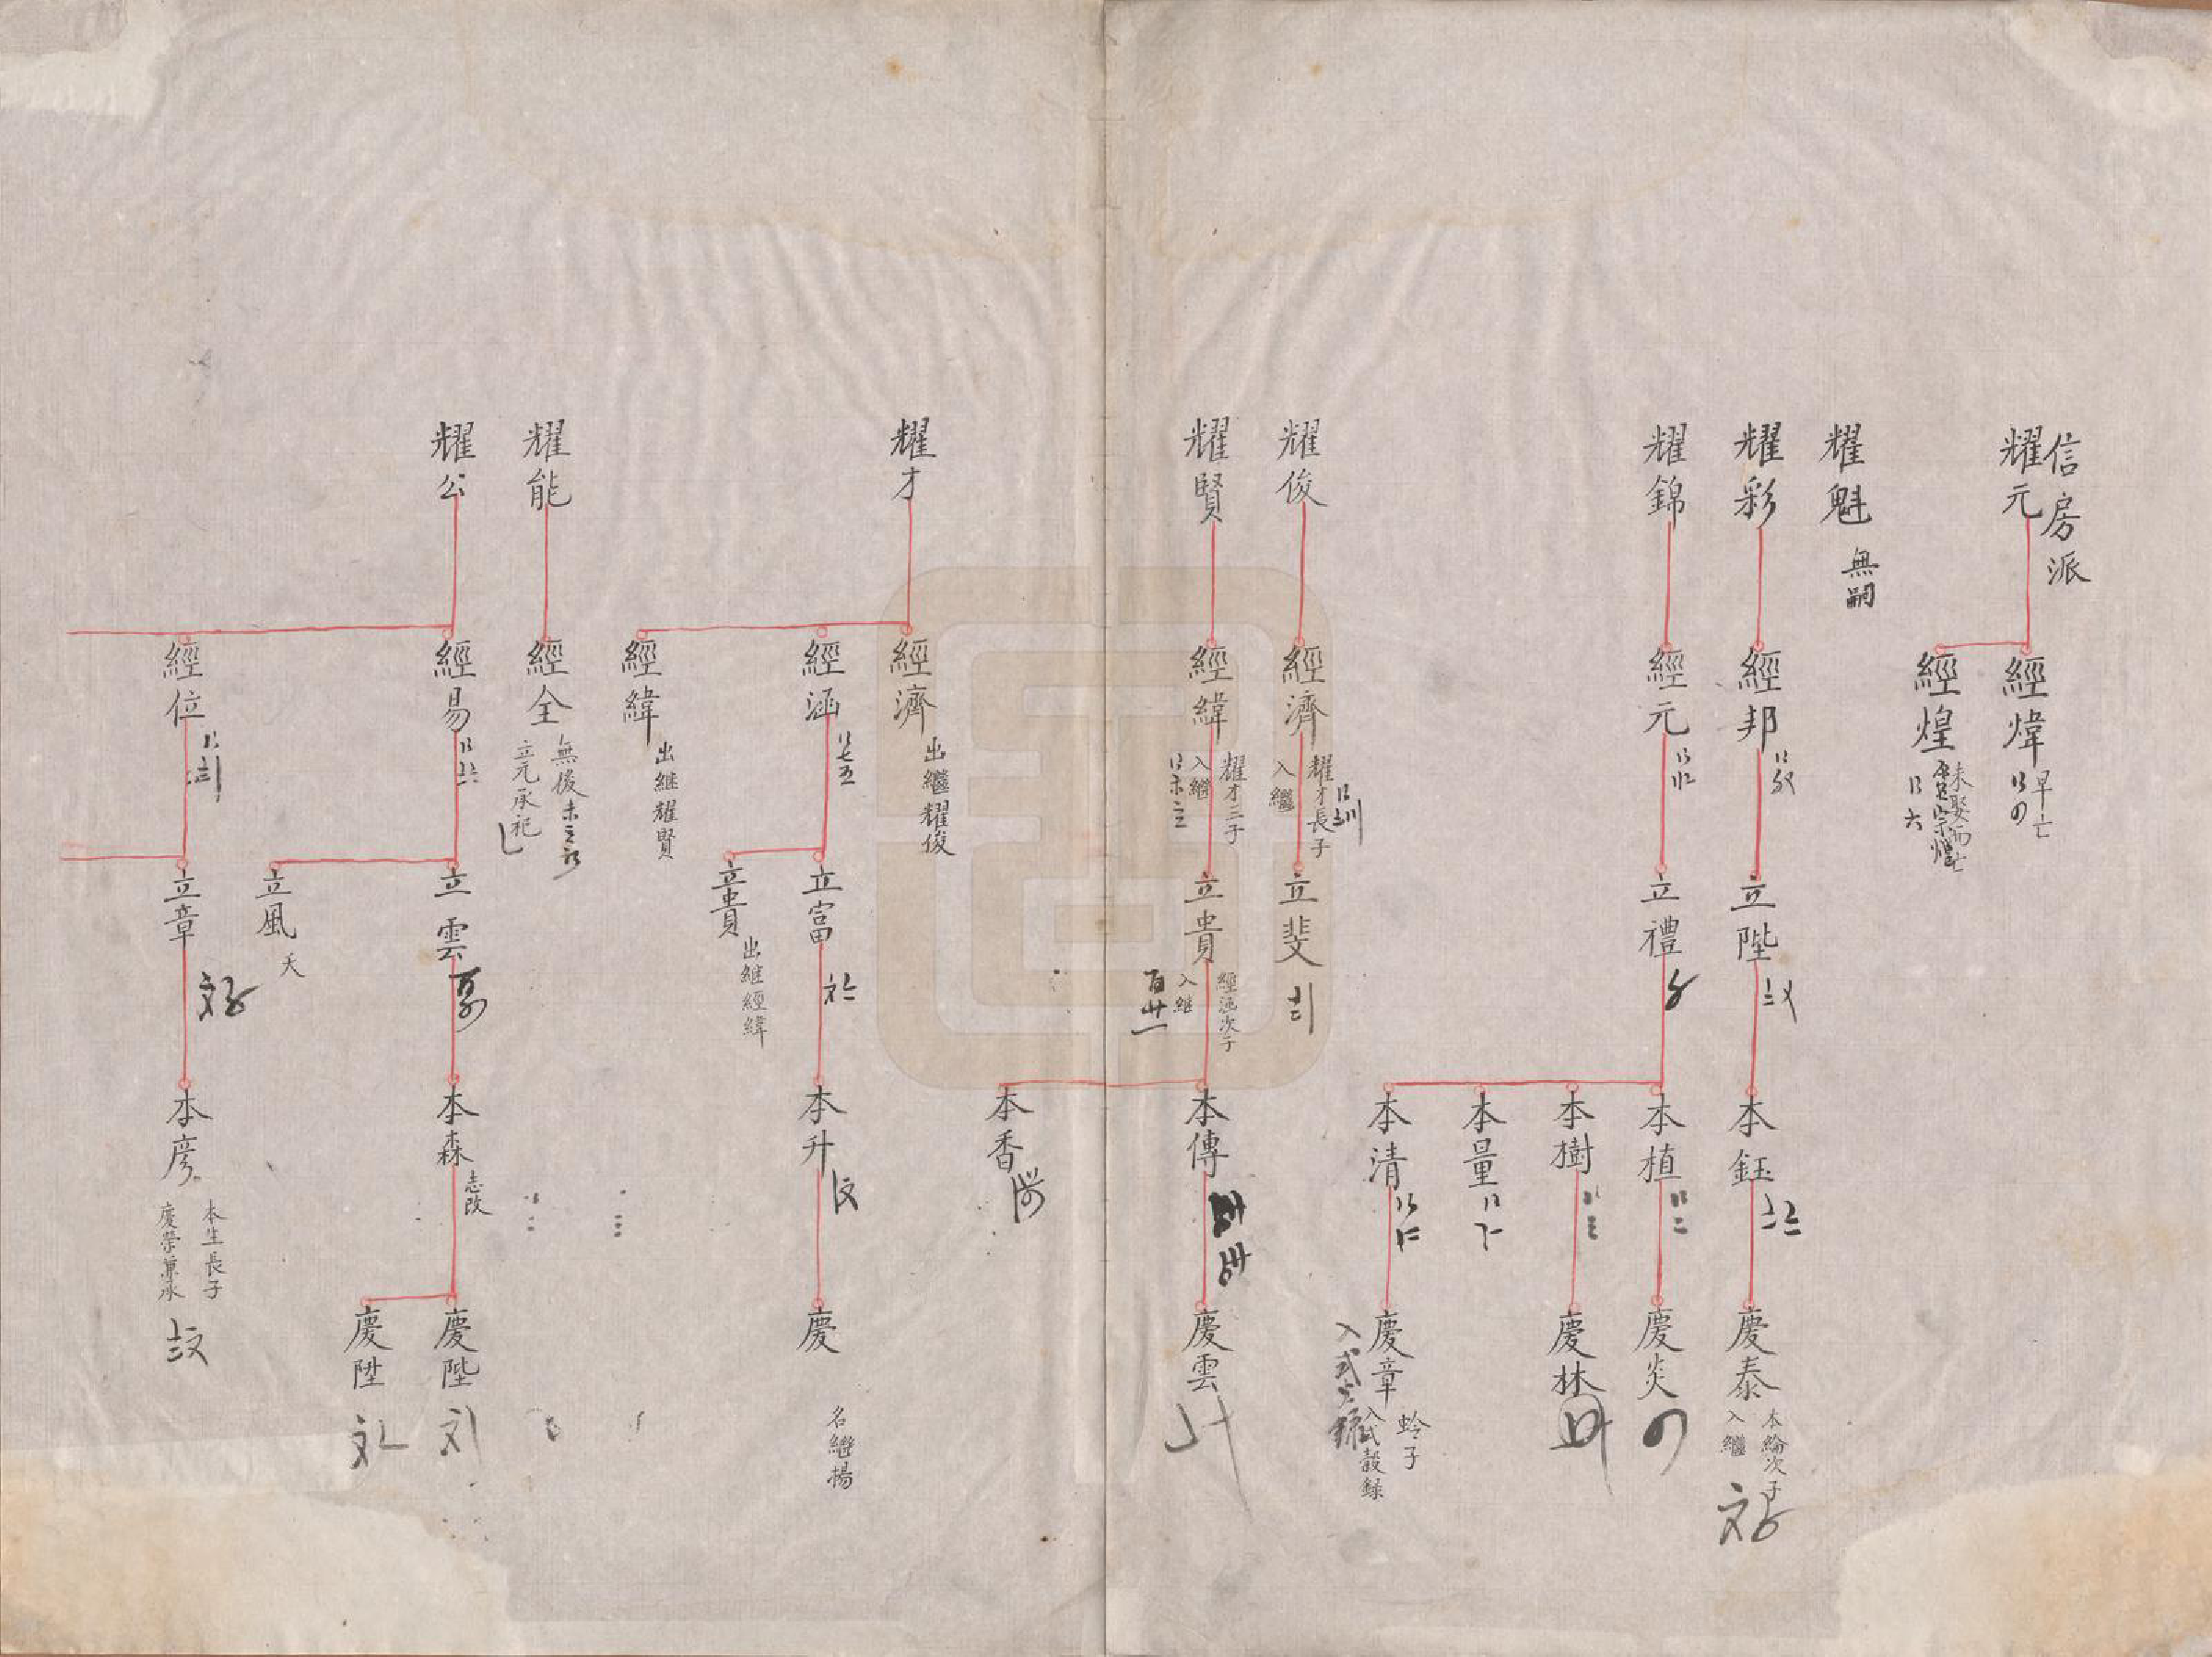 信房派
耀元
經煒
早亡
經煌
未娶而亡
耀魁
無嗣
耀彩
經邦
立陛
本鈺
慶泰
本綸次子
入繼
耀錦
經元
立禮
本植
慶炎
本樹
慶林
本量
本清
慶章
蛉子
耀俊
經濟
耀才長子
入繼
立斐
耀賢
經緯
耀才三子
入繼
立貴
經涵次子
入継
百卅一
本傳
慶雲
本香
耀才
經濟
出繼耀俊
經涵
立富
本升
慶
名繼揚
立貴
出継經緯
經緯
出継耀賢
耀能
經全
無後
立元承祀
耀公
經易
立雲
本森
志改
慶陛
慶陞
立風
夭
經位
立章
本彦
本生長子
慶榮兼承